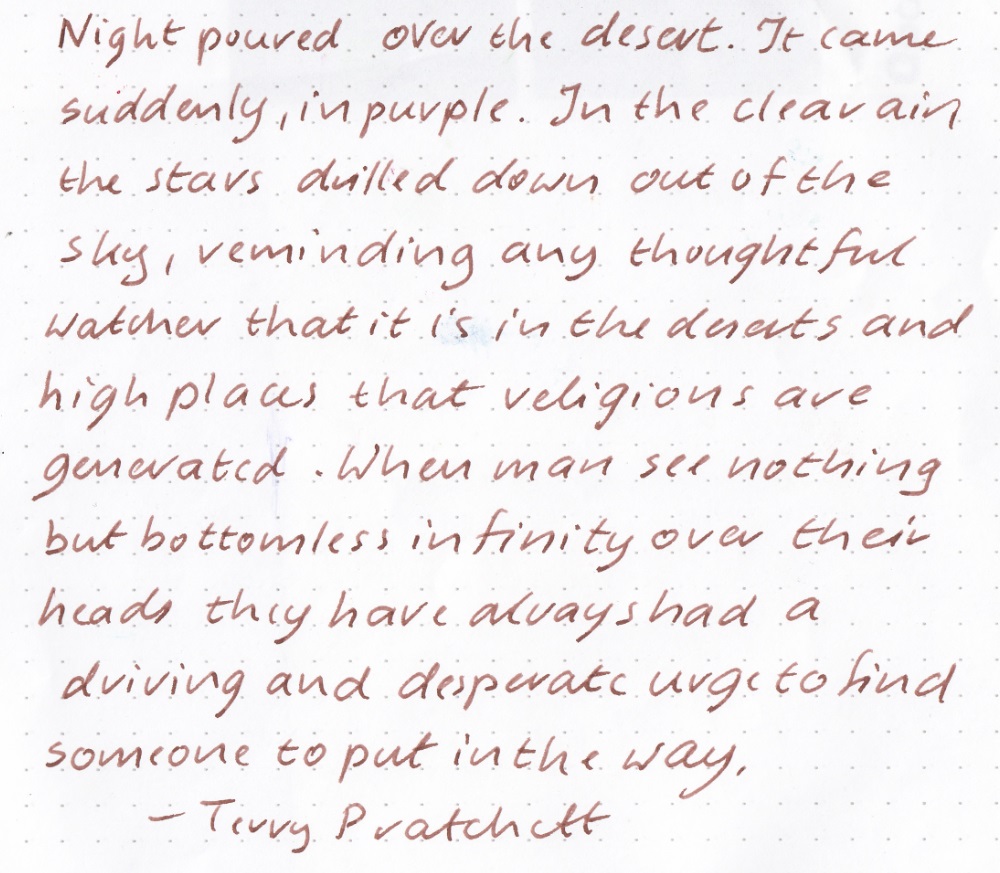 Night poured over the desert. It came
suddenly, in purple. In the clear air,
the stars drilled down out of the
sky, reminding any thoughtful
watcher that it is in the deserts and
high places that religions are
generated. When man see nothing
but bottomless infinity over their
heads they have always had a
driving and desperate urge to find
someone to put in the way.
— Terry Pratchett